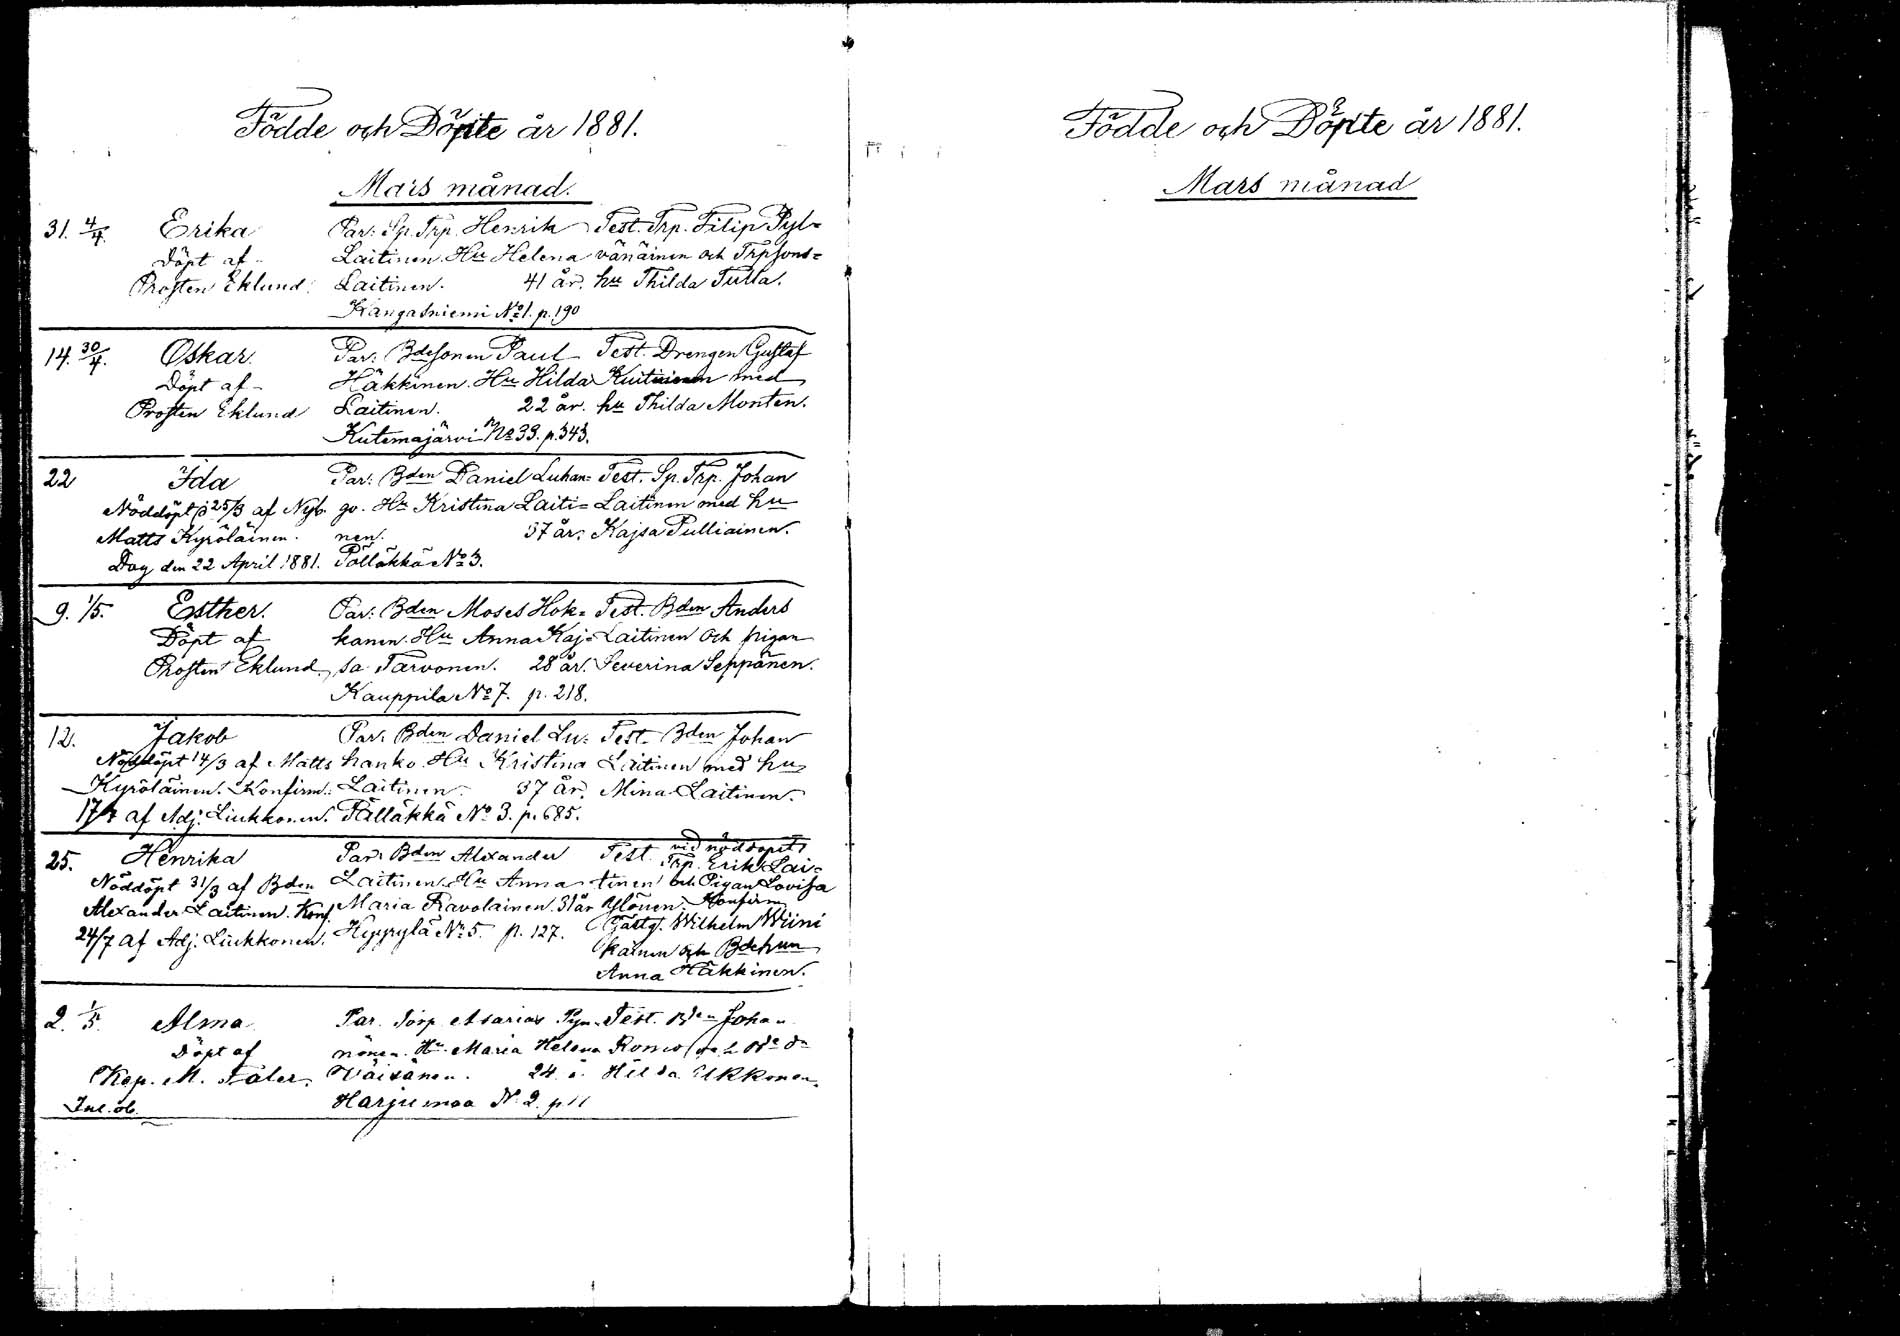 Födde och Döpte år 1881.
Mars månad.
31. 4/4. Erika Par: Sp. Trp. Henrik Test. Trp. Filip Pyl-
Döpt af Laitinen. Hu Helena vänäinen och Trpsons-
Prosten Eklund. Laitinen. 41 år. hu Thilda Tulla.
Kangasniemi No 1. p. 190
14. 30/4. Oskar. Par: Bdesonen Paul Test. Drengen Gustaf
Döpt af Häkkinen. Hu Hilda Kuitinen med
Prosten Eklund Laitinen. 22 år. hu Thilda Monten.
Kutemajärvi No 33. p. 343.
22 Ida Par: Bden Daniel Luhan- Test. Sp. Trp. Johan
Nöddöpt 25/3 af Nyb. go. Hu Kristina Laiti- Laitinen med hu
Matts Kyröläinen. nen. 37 år. Kajsa Pulliainen.
Dog den 22 April 1881. Pölläkkä No 3.
9. 1/5. Esther. Par: Bden Moses Hok- Test. Bden Anders
Döpt af kanen. Hu Anna Kaj- Laitinen och pigan
Prosten Eklund. sa Tarvonen. 28 år. Severina Seppänen.
Kauppila No 7. p. 218.
12. Jakob Par: Bden Daniel Lu- Test. Bden Johan
Nöddöpt 14/3 af Matts hanko. Hu Kristina Laitinen med hu
Kyröläinen. Konfirm: Laitinen. 37 år. Mina Laitinen.
17/4 af Adj. Liukkonen. Pälläkkä No 3. p. 685.
25. Henrika Par: Bden Alexander Test. vid nöddopet
Trp. Erik Lai-
Nöddöpt 31/3 af Bden Laitinen. Hu Anna tinen och Pigan Lovisa
Alexander Laitinen. Konf. Maria Ravolainen. 31 år Ylönen. Konfirm
24/7 af Adj. Liukkonen. Hyyrylä No 5. p. 127. Gästg. Wilhelm Wiini
kainen och Bdehun
Anna Häkkinen.
2. 1/5. Alma Par. Torp. Asarias Pyn- Test. Bden Johan
Döpt af nönen. Hu Maria Helena Romo och
Kap. M. Faler. Väisänen. 24 å. Hilda Ukkonen.
Inl. ob. Harjumaa N. 2. p 11
Födde och Döpte år 1881.
Mars månad